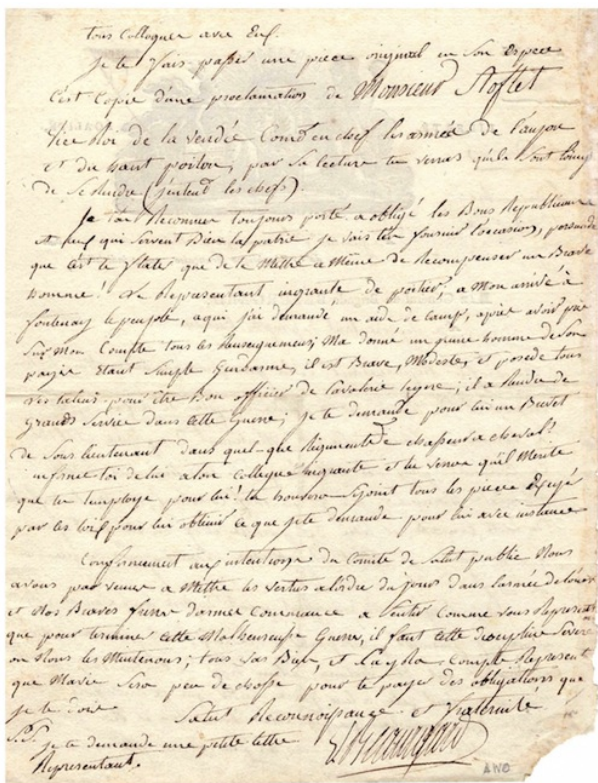 tous Colloquer avec Eux.
Je te fais passer une piece original en son Espece
C'est Copie d'une proclamation de Monsieur Stoflet
Vice Roi de la vendée Comdt en chef les armée de l'anjou
et du haut poitou, par sa lecture tu verras qu'ils sont loing
de se Rendre (j'entend les chefs).
Je t'ai Reconnu toujours porté a obligé les Bons Republicains
et ceux qui servent Bien la patrie je vais t'en fournir l'occasion, persuadé
que c'est te flater que de te Mettre a Même de Recompenser un Brave
homme! Le Representant ingrante de poitier, a Mon arrivé à
fontenay le peuple, a qui j'ai demandé un aide de camp, après avoir pris
sur Mon Compte tous les Renseignemens, Ma donné un jeune homme de son
payis Etant Simple Gendarme, il est Brave, Modeste, et possede tous
les talens pour être Bon officier de Cavalerie legere; il a Rendu de
grands service dans cette Guerre; je te demande pour lui un Brevet
de Sous lieutenant dans quel-que Regiments de chasseur a cheval!
informe toi de lui a ton Collegue ingrante et tu verra qu'il Merite
que tu temploye pour lui! tu trouvera Sjoint tous les piece Exigé
par les loix pour lui obtenir ce que je te demande pour lui avec instance
Conformement aux intentions du Comité de Salut public Nous
avons par venue a Mettre les vertus a lordre du jour dans larmée de louest
et Nos Braves frere darmes Commance a Sentir Comme vous Represent
que pour terminer cette Malheureuse Guerre, il faut cette discipline Severe
ou Nous les Maintenons; tous va Bien, et Compte Represent
que Ma vie Sera peu de chosse pour te payer des obligations que
je te dois Salut Reconnoissance et fraternité
P.S.
je te demande une petite lettre
Representant.